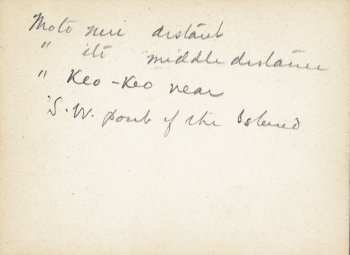 Moto nui distant
" iti middle distance
" Keo-Keo near
S.W. point of the Island